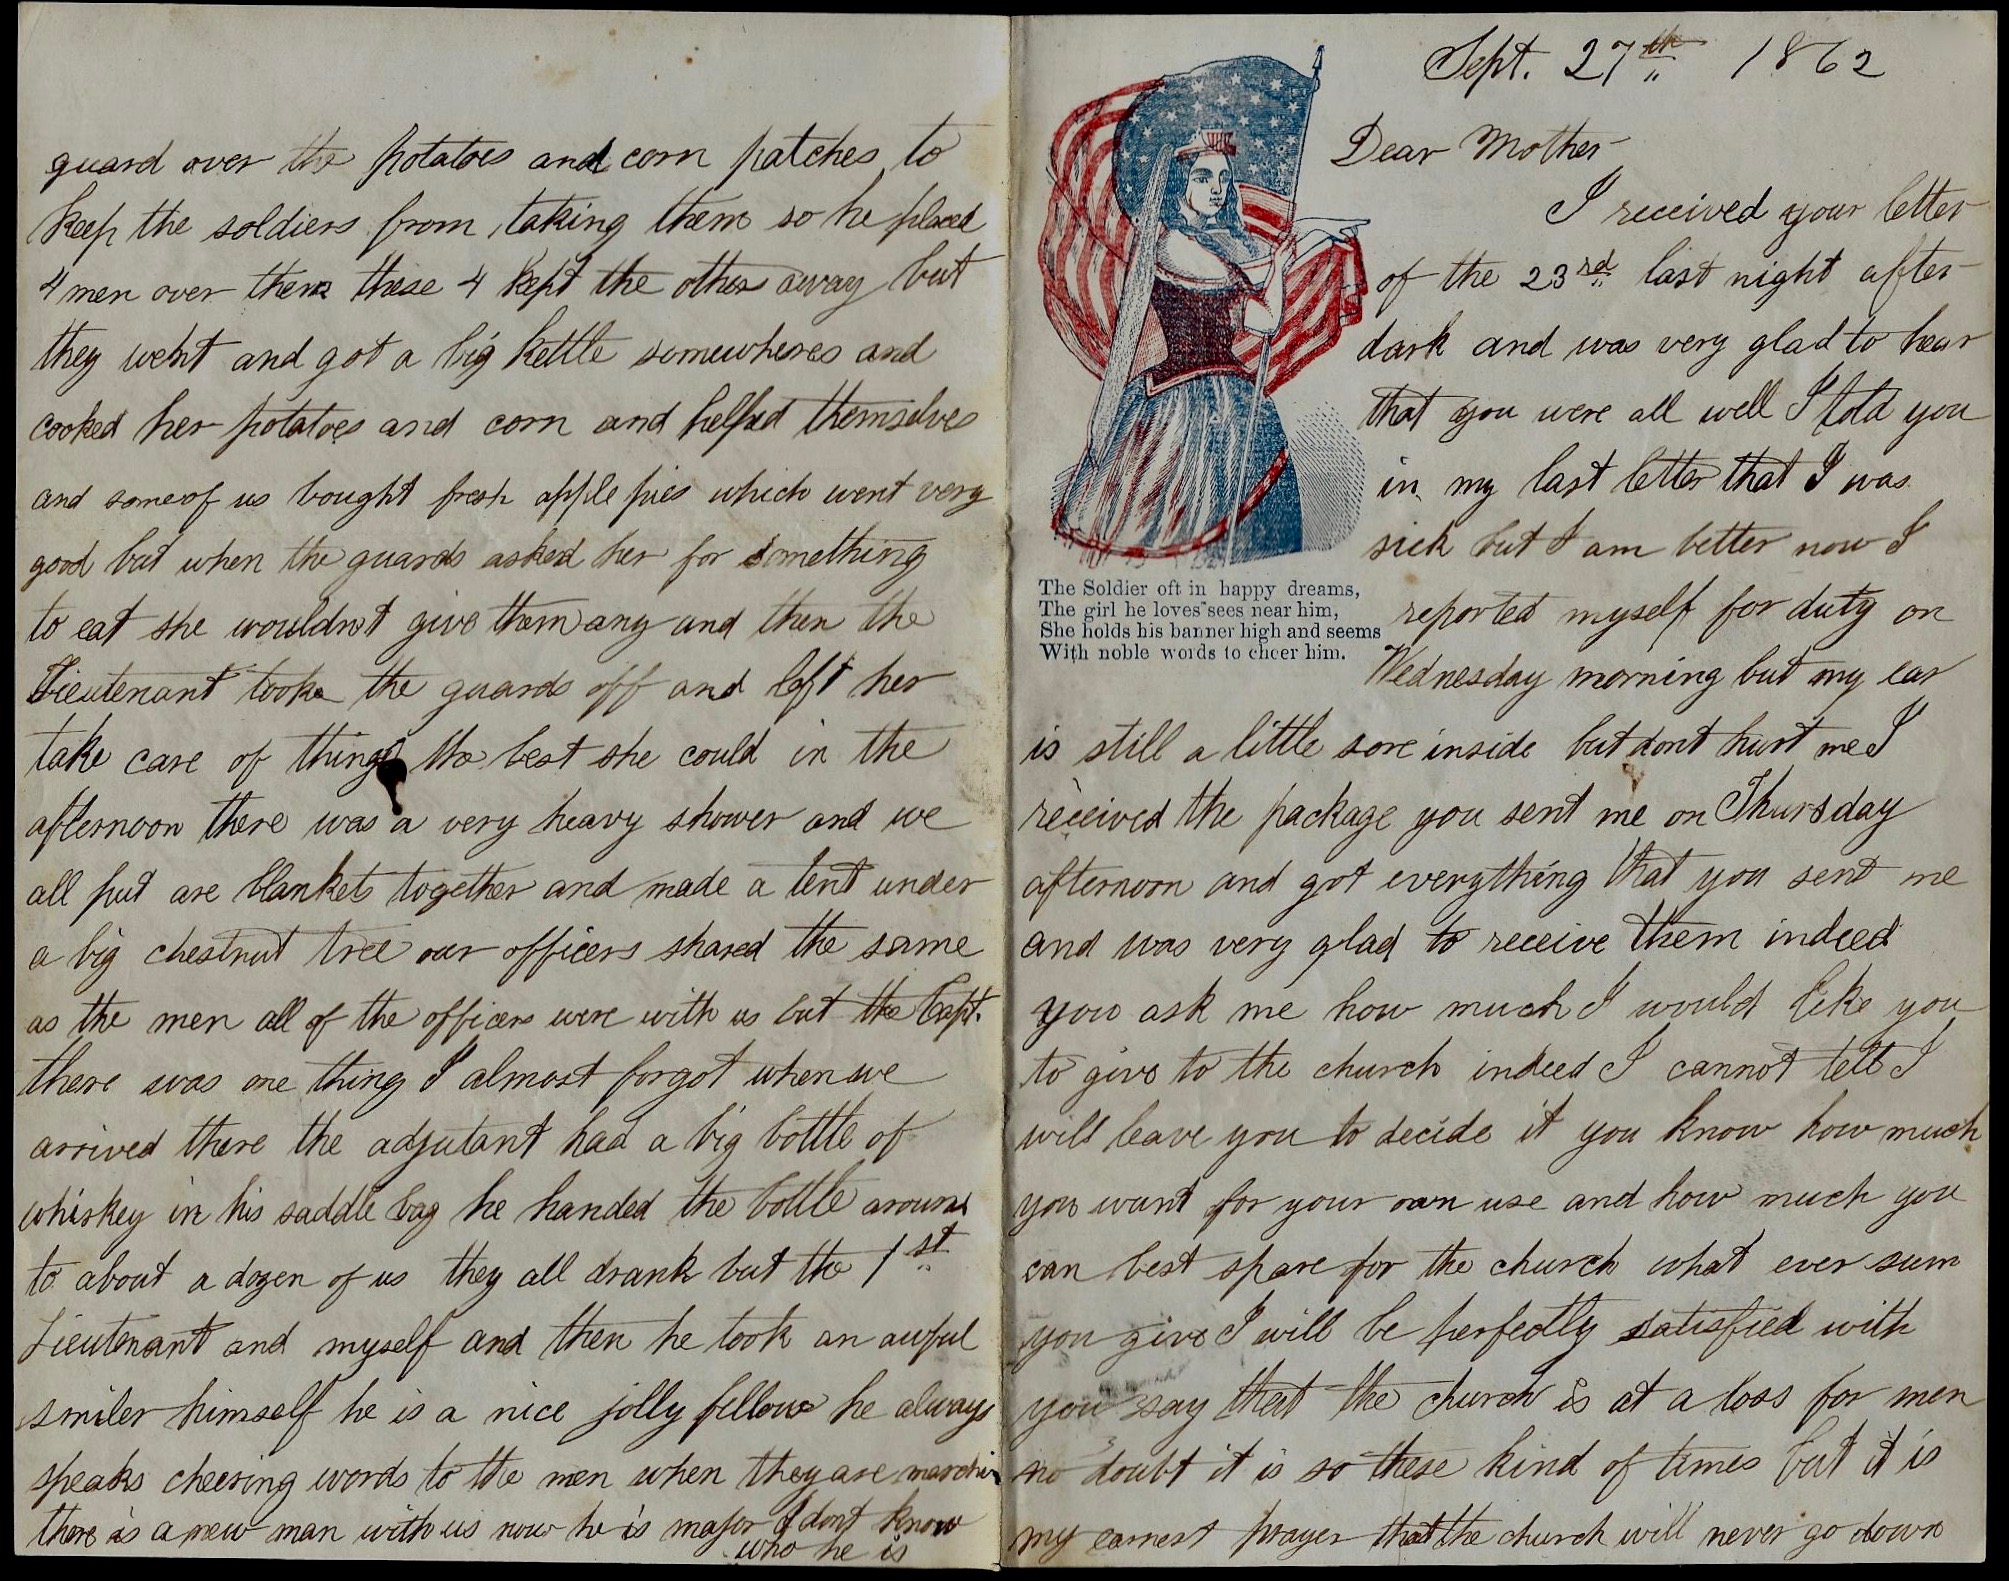 guard over the potatoes and corn patches to
keep the soldiers from taking them so he placed
4 men over them these 4 kept the others away but
they went and got a big kettle somewheres and
cooked her potatoes and corn and helped themselves
and some of us bought fresh apple pies which went very
good but when the guards asked her for something
to eat she wouldnt give them any and then the
Lieutenant tooke the guards off and left her
take care of things the best she could in the
afternoon there was a very heavy shower and we
all put are blankets together and made a tent under
a big chestnut tree our officers shared the same
as the men all of the officers were with us but the Capt.
there was one thing I almost forgot when we
arrived there the adjutant had a big bottle of
whiskey in his saddle bag he handed the bottle around
to about a dozen of us they all drank but the 1st
Lieutenant and myself and then he took an awful
smiler himself he is a nice jolly fellow he always
speaks cheering words to the men when they are marchin
there is a new man with us now he is major I dont know
who he is
Sept. 27th 1862
Dear Mother
I received your letter
of the 23rd last night after
dark and was very glad to hear
that you were all well I told you
in my last letter that I was
sick but I am better now I
reported myself for duty on
Wednesday morning but my ear
The Soldier oft in happy dreams,
The girl he loves sees near him,
She holds his banner high and seems
With noble words to cheer him.
is still a little sore inside but dont hurt me I
received the package you sent me on Thursday
afternoon and got everything that you sent me
and was very glad to receive them indeed
you ask me how much I would like you
to give to the church indeed I cannot tell I
will leave you to decide it you know how much
you want for your own use and how much you
can best spare for the church what ever sum
you give I will be perfectly satisfied with
you say that the church is at a loss for men
no doubt it is so these kind of times but it is
my earnest prayer that the church will never go down